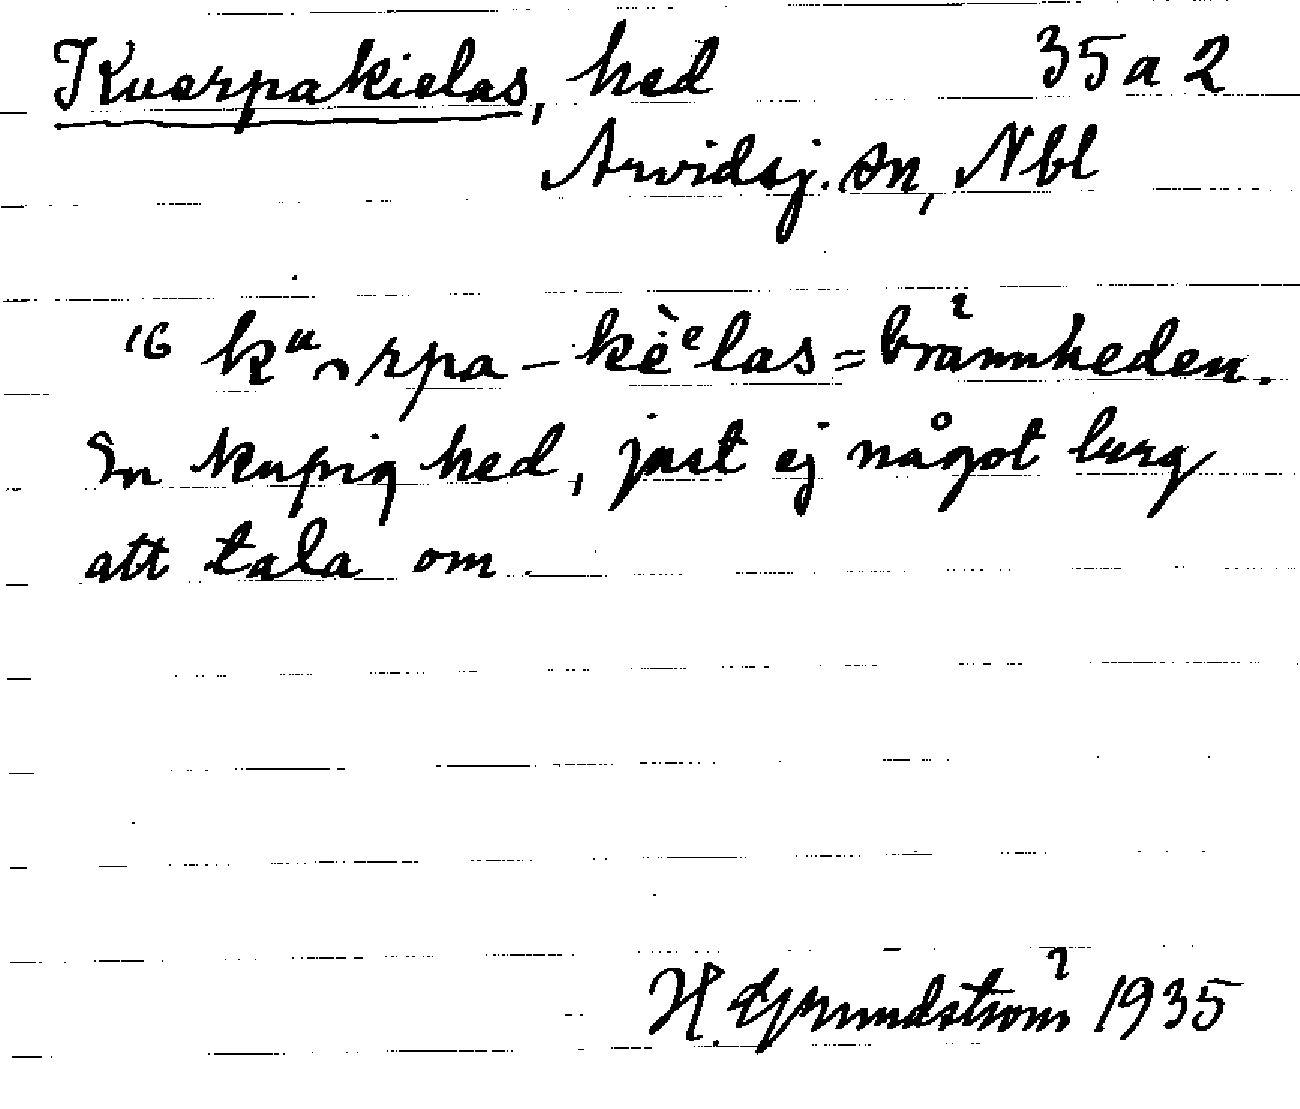 Kuorpakielas, hed 35 a 2
Arvidsj. sn, Nbl
16 kᵘ rpa – kèᵉlas = brännheden.
En kupig hed, just ej något berg
att tala om.
H. Grundström 1935